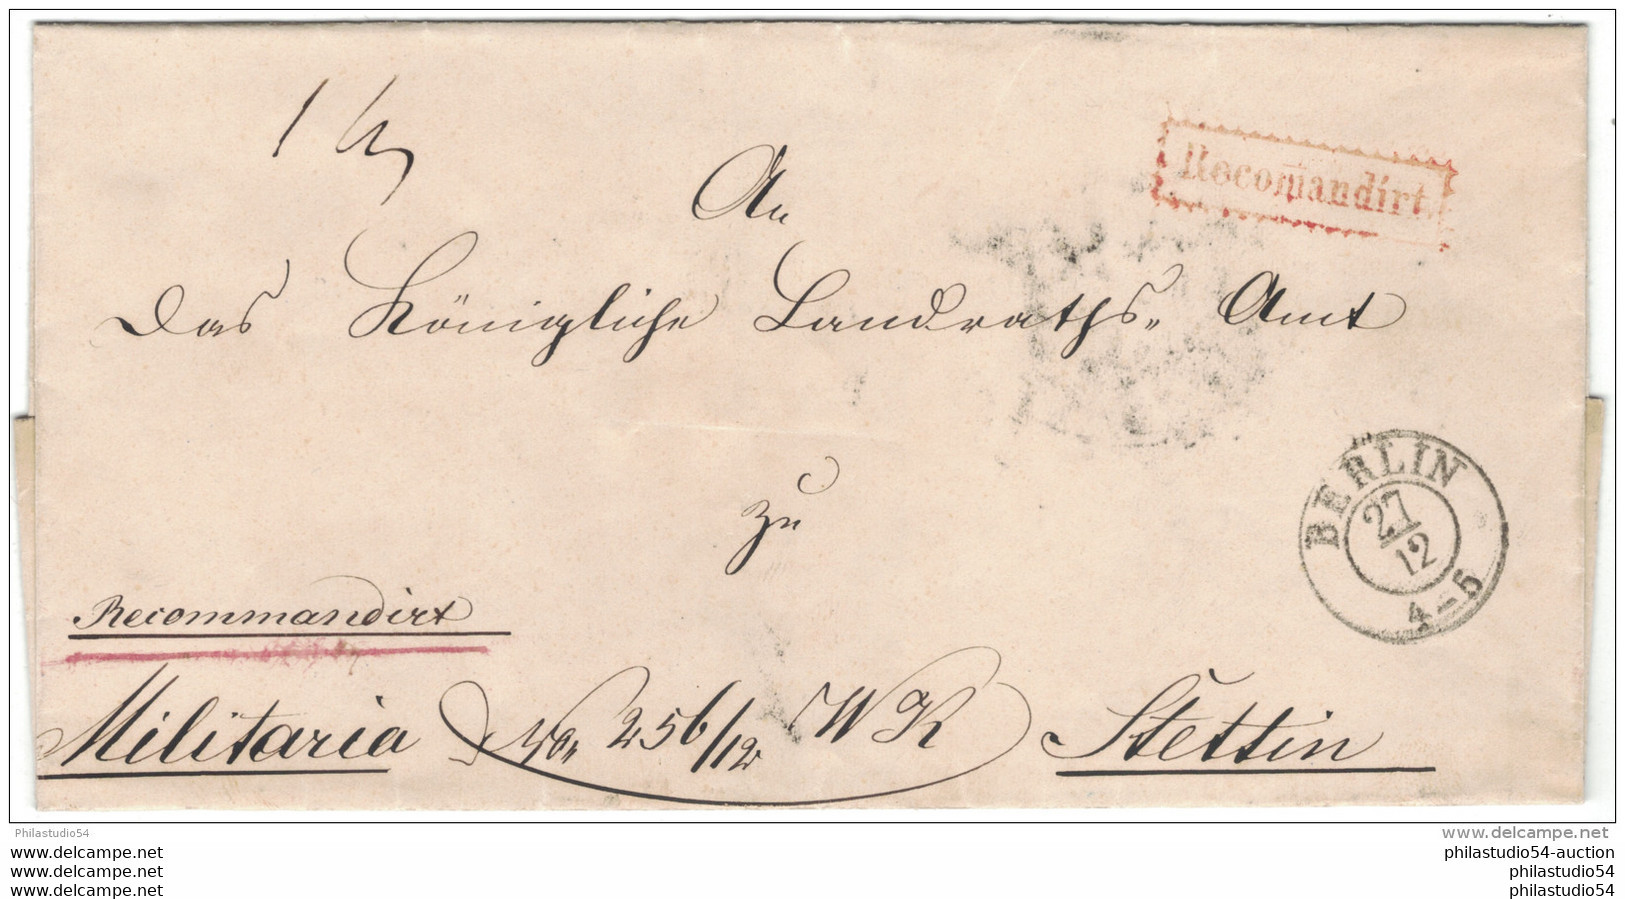 Recomandirt
An
Das Königliche Landraths- Amt
BERLIN
27/12
4-5
zu
Recommandirt
Militaria No. 256/12 WK Stettin
Philastudio54
www.delcampe.net
www.delcampe.net
philastudio54-auction
www.delcampe.net
philastudio54
www.delcampe.net
philastudio54